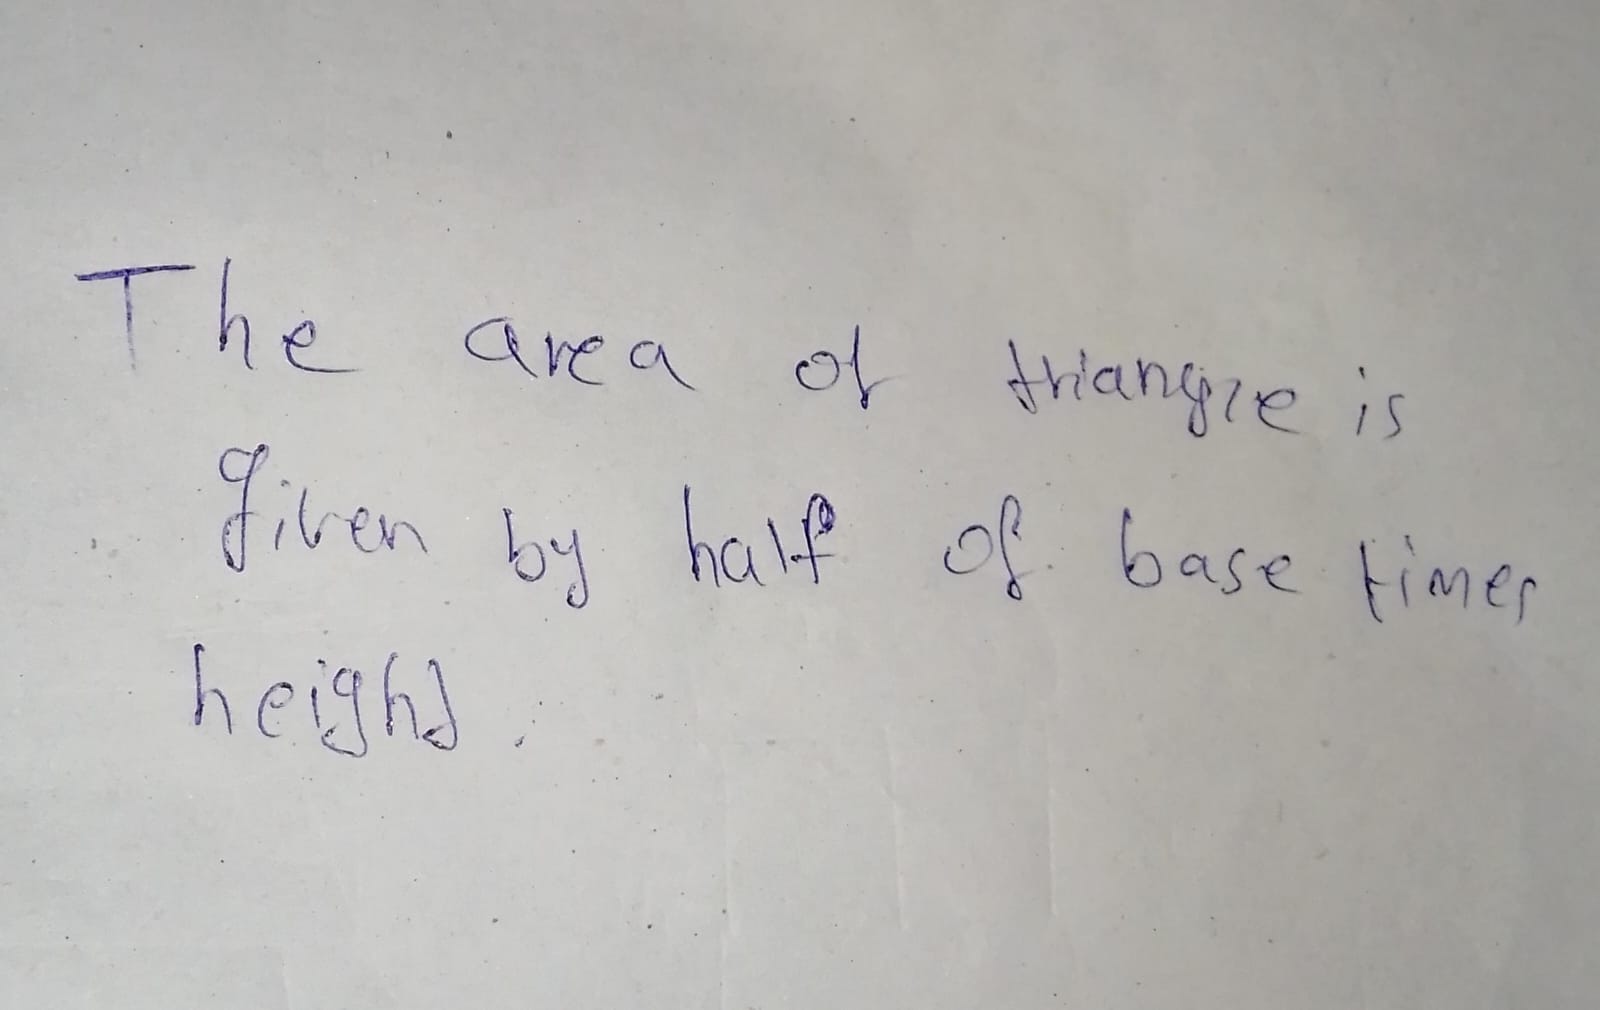 The area of triangle is
given by half of base times
height.